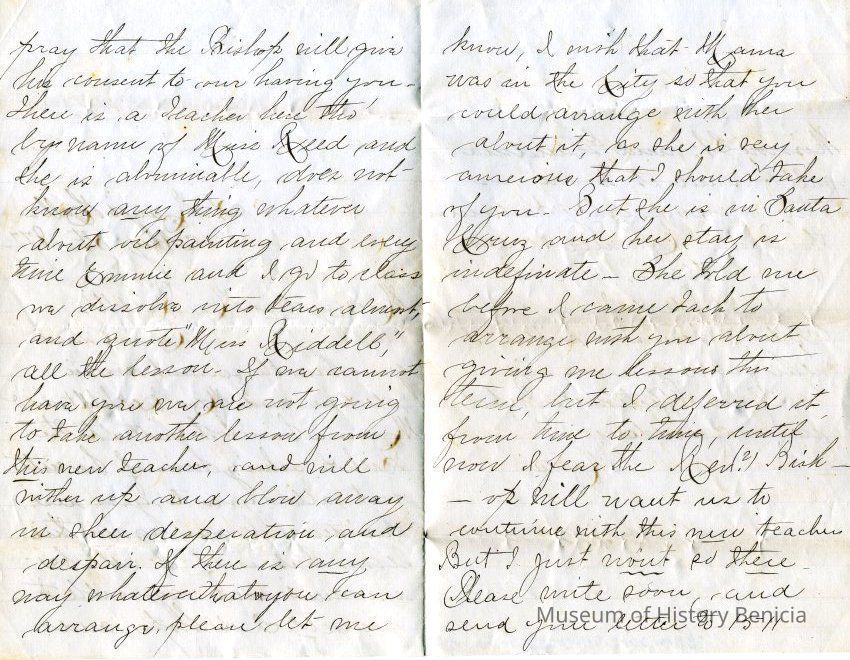 pray that the Bishop will give
his consent to our having you -
There is a Teacher here tho'
by name of Miss Reed and
she is abominable, does not -
know any thing whatever
about oil painting and every
time Emmie and I go to class
we dissolve into tears almost,
and quote "Miss Riddell",
all the lesson. If we cannot
have you we are not going
to take another lesson from
this new teacher, and will
wither up and blow away
in sheer desperation, and
despair. If there is any
way whatever that you can
arrange, please let me
know, I wish that Mama
was in the City so that you
could arrange with her
about it, as she is very
anxious that I should take
of you - But she is in Santa
Cruz and her stay is
indefinate - She told me
before I came back to
arrange with you about
giving me lessons this
term, but I deferred it
from time to time, until
now I fear the Revd. Bish -
- op will want us to
continue with this new teacher
But I just wont so there -
Please write soon, and
send your letter to
Museum of History Benicia